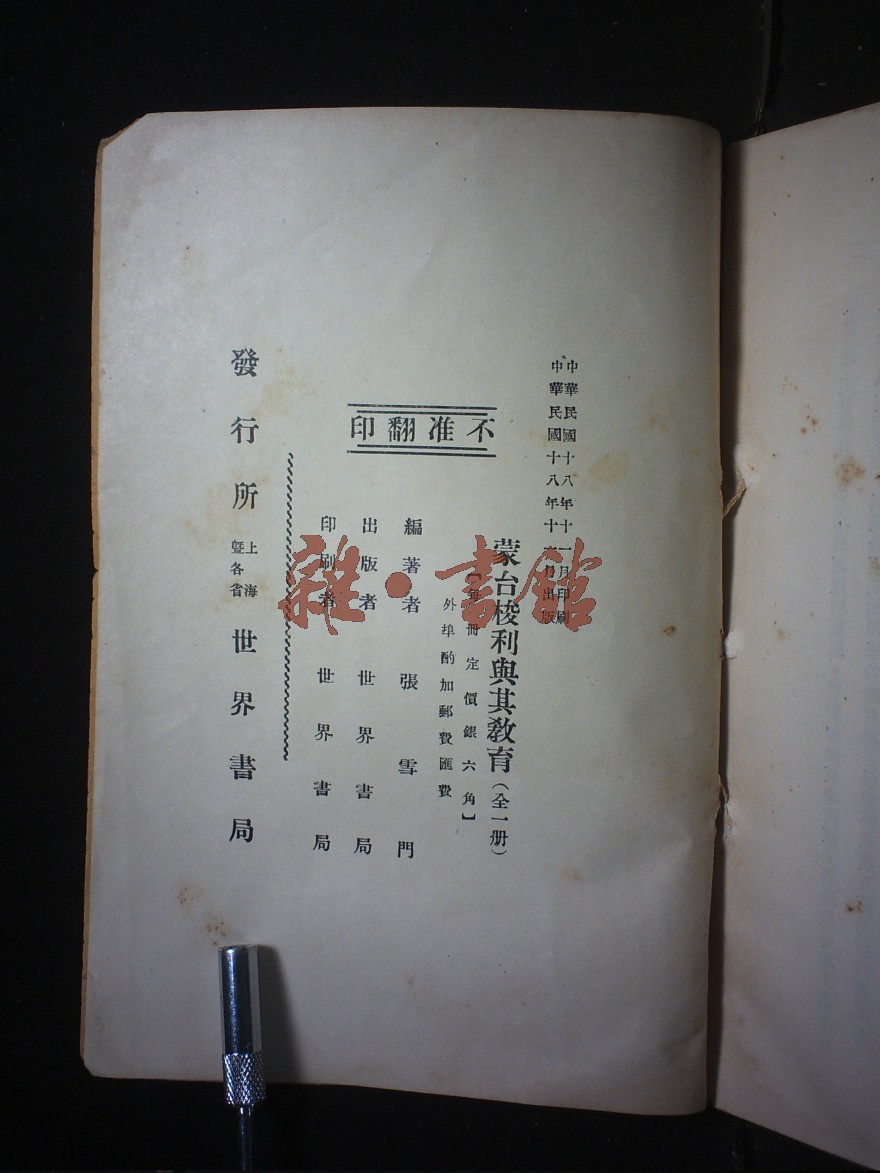 中華民國十八年十一月印刷
中華民國十八年十一月出版
蒙台梭利與其教育(全一册)
【每冊定價銀六角】
外埠酌加郵費匯費
不准翻印
編著者 張雪門
出版者 世界書局
印刷者 世界書局
發行所 上海暨各省 世界書局
雜·書館